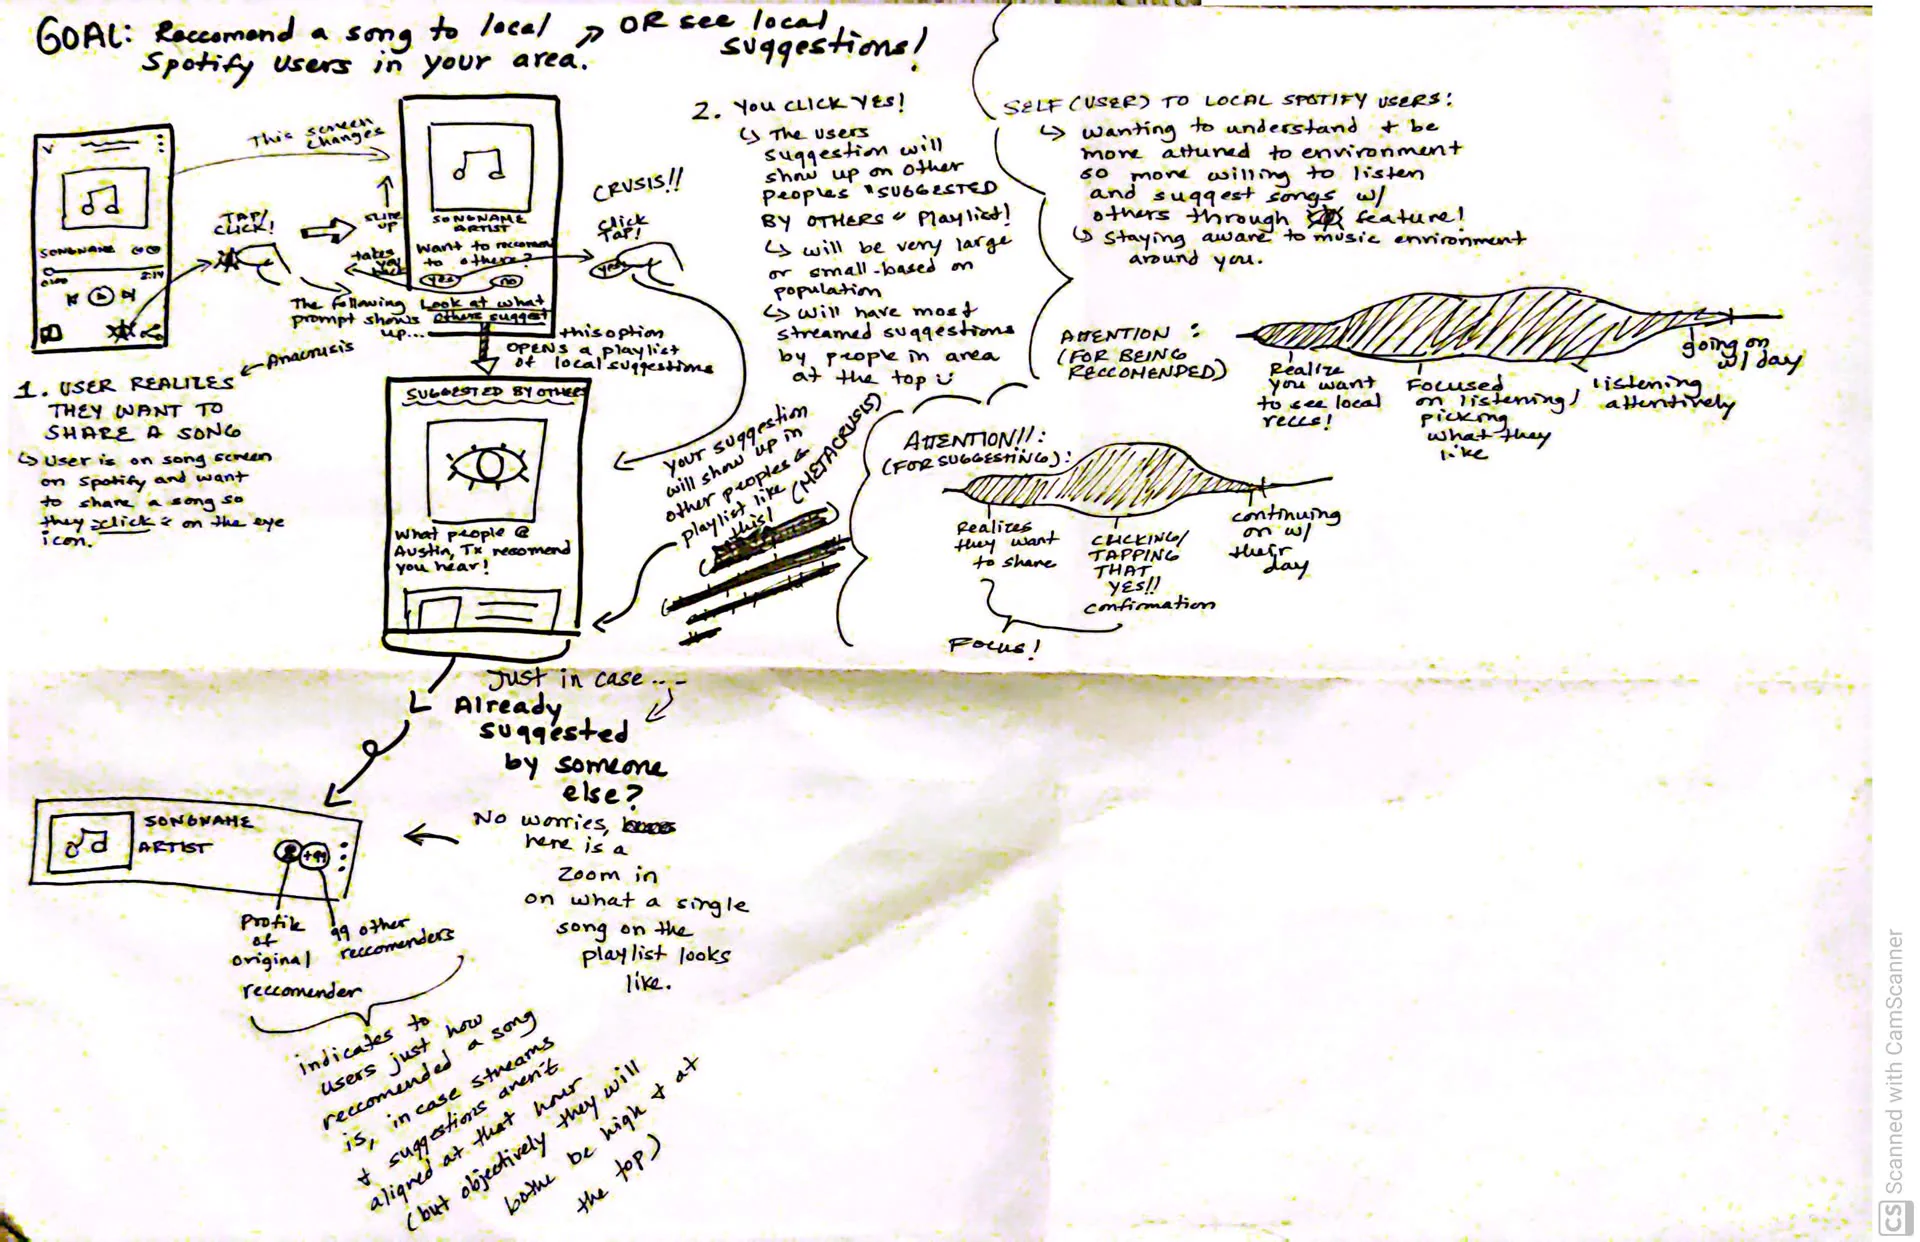 GOAL: Reccomend a song to local
Spotify users in your area.
OR see local
suggestions!
SONGNAME
0:00
2:14
This screen
changes
TAP/
CLICK!
SLIDE
UP
takes
you
back
The following
prompt shows
up...
SONGNAME
ARTIST
Want to reccomend
to others?
yes
no
Look at what
others suggest
CRUSIS!!
click
TAP!
yes
this option
OPENS a playlist
of local suggestions
Anacrusis
1. USER REALIZES
THEY WANT TO
SHARE A SONG
User is on song screen
on spotify and want
to share a song so
they click on the eye
icon.
SUGGESTED BY OTHERS
What people @
Austin, Tx recomend
you hear!
your suggestion
will show up in
other peoples
playlist like
this!
(METACRUSIS)
2. YOU CLICK YES!
The users
suggestion will
show up on other
peoples "SUGGESTED
BY OTHERS" Playlist!
will be very large
or small-based on
population
will have most
streamed suggestions
by people in area
at the top
SELF (USER) TO LOCAL SPOTIFY USERS:
wanting to understand + be
more attuned to environment
so more willing to listen
and suggest songs w/
others through feature!
Staying aware to music environment
around you.
ATTENTION:
(FOR BEING
RECCOMENDED)
Realize
you want
to see local
reccs!
Focused
on listening/
picking
what they
like
listening
attentively
going on
w/ day
ATTENTION!!:
(FOR SUGGESTING):
Realizes
they want
to share
CLICKING/
TAPPING
THAT
YES!!
confirmation
continuing
on w/
their
day
FOCUS!
Just in case...
Already
suggested
by someone
else?
No worries,
here is a
zoom in
on what a single
song on the
playlist looks
like.
SONGNAME
ARTIST
+99
profile
of
original
reccomender
99 other
reccomenders
indicates to
users just how
reccomended a song
is, in case streams
+ suggestions aren't
aligned at that hour
(but objectively they will
bothe be high + at
the top)
CS Scanned with CamScanner